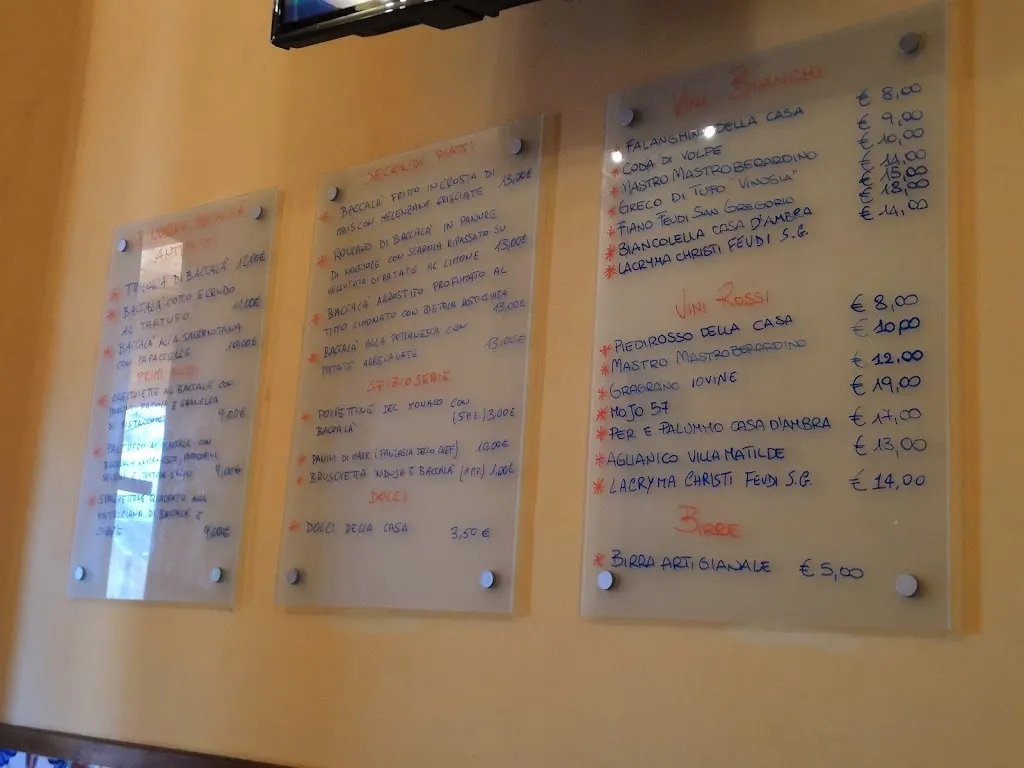 ANTIPASTI
* TRILOGIA DI BACCALA' 12,00€
* BACCALA' COTTO E CRUDO
AL TARTUFO
* BACCALA' ALLA SALERNITANA
CON PAPACCELLE 10,00€
PRIMI PIATTI
* ORECCHIETTE AL BACCALA' CON
DI PISTACCHIO 9,00€
9,00€
MATRICIANA DI BACCALA' E
9,00€
SECONDI PIATTI
* BACCALA' FRITTO IN CROSTA DI
MAIS CON MELENZANE GRIGLIATE 13,00€
* ROLLAND DI BACCALA' IN PANURE
DI NOCCIOLE CON SCAROLA RIPASSATO SU
VELLUTATA DI PATATE AL LIMONE 13,00€
* BACCALA' ARROSTITO PROFUMATO AL
TIMO LIMONATO CON BIETOLA AGLIATA
13,00€
* BACCALA' ALLA PUTTANESCA CON
PATATE ARRECANATE 13,00€
SFIZIOSERIE
* POLPETTINE DEL MONACO CON
BACCALA' (5PZ) 3,00€
* PANINI DI MARE (FANTASIA DELLO CHEF) 10,00€
* BRUSCHETTA 'NDUJA E BACCALA' (1PZ) 1,00€
DOLCI
* DOLCI DELLA CASA 3,50€
VINI BIANCHI
* FALANGHINA DELLA CASA € 8,00
* CODA DI VOLPE € 9,00
* MASTRO MASTROBERARDINO € 10,00
* GRECO DI TUFO "VINOSIA" € 14,00
* FIANO FEUDI SAN GREGORIO € 15,00
* BIANCOLELLA CASA D'AMBRA € 18,00
* LACRYMA CHRISTI FEUDI S.G. € 14,00
VINI ROSSI
* PIEDIROSSO DELLA CASA € 8,00
* MASTRO MASTROBERARDINO € 10,00
* GRAGNANO IOVINE € 12,00
* MOJO 57 € 19,00
* PER E PALUMMO CASA D'AMBRA € 17,00
* AGLIANICO VILLA MATILDE € 13,00
* LACRYMA CHRISTI FEUDI S.G. € 14,00
BIRRE
* BIRRA ARTIGIANALE € 5,00